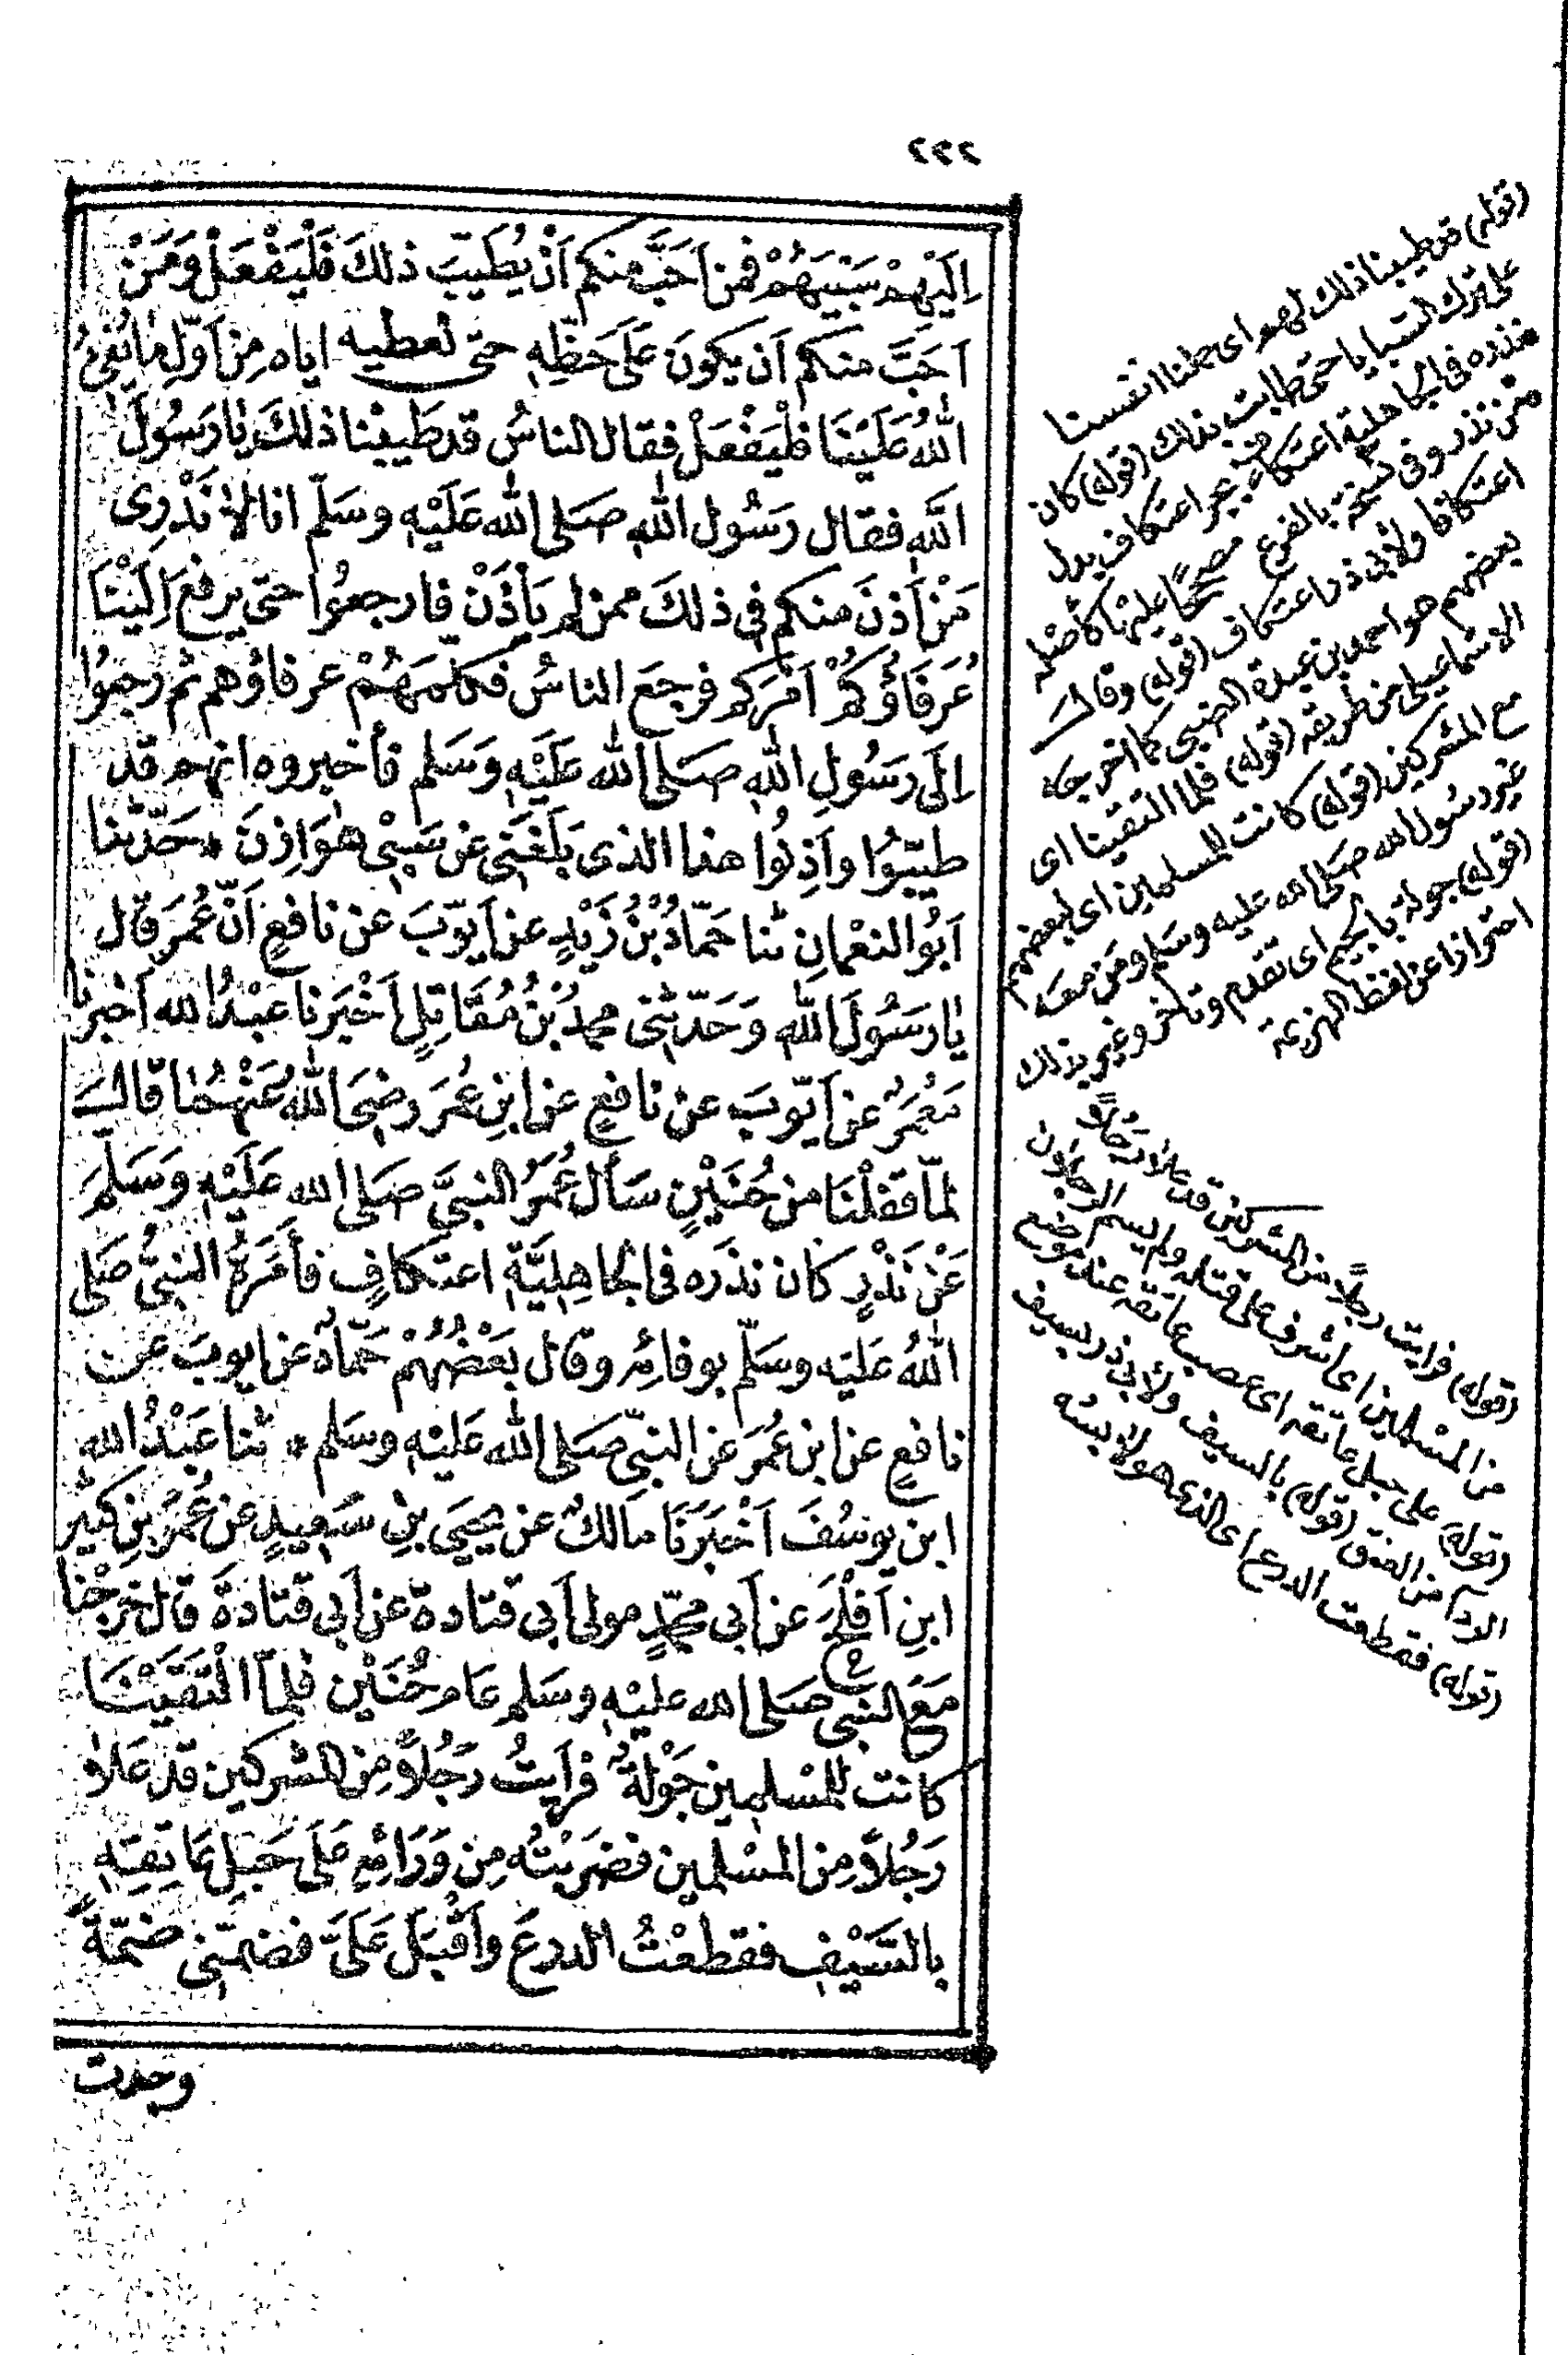 ٢٢٢
اِلَيْهِمْ سَبْيَهُمْ فمن اَحَبَّ منكم اَنْ يُطَيِّبَ ذلكَ فَلْيَفْعَلْ وَمَنْ
اَحَبَّ منكم اَن يكونَ عَلَى حَظِّهِ حتى نعطيه اياه مِنْ اَوَّلِ مٰا يُفِىُٔ
اللّٰهُ عَلَيْنَا فلْيَفْعَلْ فقال الناسُ قد طَيَّبْنا ذلكَ يٰا رَسُولَ
اللّٰهِ فقال رَسُول اللّٰهِ صَلى اللّٰه عَلَيْهِ وسَلّم انا لاٰ نَدْرِى
مَنْ اَذِنَ منكم فى ذلكَ ممن لم يَأْذَنْ فارجعُوا حتى يرفعَ اِلَيْنَا
عُرَفَاؤُكُمْ اَمْرَكم فرجَعَ الناسُ فكلمَهُمْ عرفاؤهم ثم رجعُوا
اِلَى رَسُولِ اللّٰهِ صَلى اللّٰه عَلَيْهِ وَسَلم فأخبروه انهم قد
طيّبُوا واَذِنُوا هذا الذى بَلَغَنِى عَن سَبْىِ هٰوَازِنَ * حَدّثنا
اَبُو النعْمانِ ثنا حَمّادُ بْنُ زَيْدٍ عن اَيّوبَ عن نافعٍ اَنّ عُمَرَ قال
يٰا رَسُولَ اللّٰهِ وَحَدّثنى محمدُ بْنُ مُقَاتِلٍ اَخْبَرنا عبْدُ الله اَخبرنا
مَعْمَرٌ عن اَيّوبَ عن نافعٍ عن ابنِ عُمَرَ رضىَ اللّٰهُ عَنْهُمٰا قال
لمّا قفلْنَا من حُنَيْنٍ سَأل عُمَرُ النبىَّ صَلى الله عَلَيْهِ وَسَلّمَ
عَنْ نَذْرٍ كان نذَره فى الجاهِلِيَّةِ اعتكافٍ فأمَرَهُ النبىُّ صَلى
اللّٰهُ عَليْه وسَلّم بوفائِه وقال بَعْضُهُمْ حَمّادٌ عن ايوبَ عن
نافعٍ عن ابن عُمَرَ عن النبىّ صَلى اللّٰه عَليْهِ وسَلم * ثنا عَبْدُ الله
ابن يوسُفَ اَخْبَرَنَا مالكٌ عن يحيَى بنِ سَعِيدٍ عَن عُمَرَ بنِ كثيرِ
ابنِ اَفْلَحَ عن اَبى محمّدٍ مولى اَبى قتادة عن اَبى قتادَةَ قال خرَجْنا
مَعَ النبى صَلى الله عليْهِ وسَلم عَام حُنَيْن فلمّا الْتَقَيْنَا
كانت للمسْلِمِين جَوْلَةٌ فرأيتُ رَجُلاً مِن المشركين قد عَلاٰ
رَجُلاً مِن المسْلمين فضرَبْتُه مِن وَرَائِهِ عَلَى حَبلِ عَاتِقِهِ
بالسَيْفِ فقطعْتُ الدرعَ واَقْبَلَ عَلَىَّ فضمّنى ضمّةً
وجدت
(قوله) قد طيبنا ذلك لهم اى حملنا انفسنا
على ترك السبايا حتى طابت بذلك (قوله) كان
نذره فى الجاهلية اعتكاف بجر اعتكاف بدل
من نذر وفى نسخة بالفرع مصححًا عليها كأصله
اعتكافا ولأبى ذر اعتكاف (قوله) وقال
بعضهم هو احمد بن عبدة الضبى كما اخرجه
الاسماعيلى من طريقه (قوله) فلما التقينا اى
مع المشركين (قوله) كانت للمسلمين اى لبعضهم
غير رسُول الله صلى الله عليه وسلم ومن معه
(قوله) جولة بالجيم اى تقدم وتأخر وعبر بذلك
احترازا عن لفظ الهزيمة
(قوله) فرايت رجلاً من المشركين قد علا رجلاً
من المسْلمين اى اشرف على قتله ولم يسم الرجلان
(قوله) على حبل عاتقه اى عصب عاتقه عند موضع
الردا من العنق (قوله) بالسيف ولأبى ذر بسيف
(قوله) فقطعت الدرع اى الذى هو لابسه